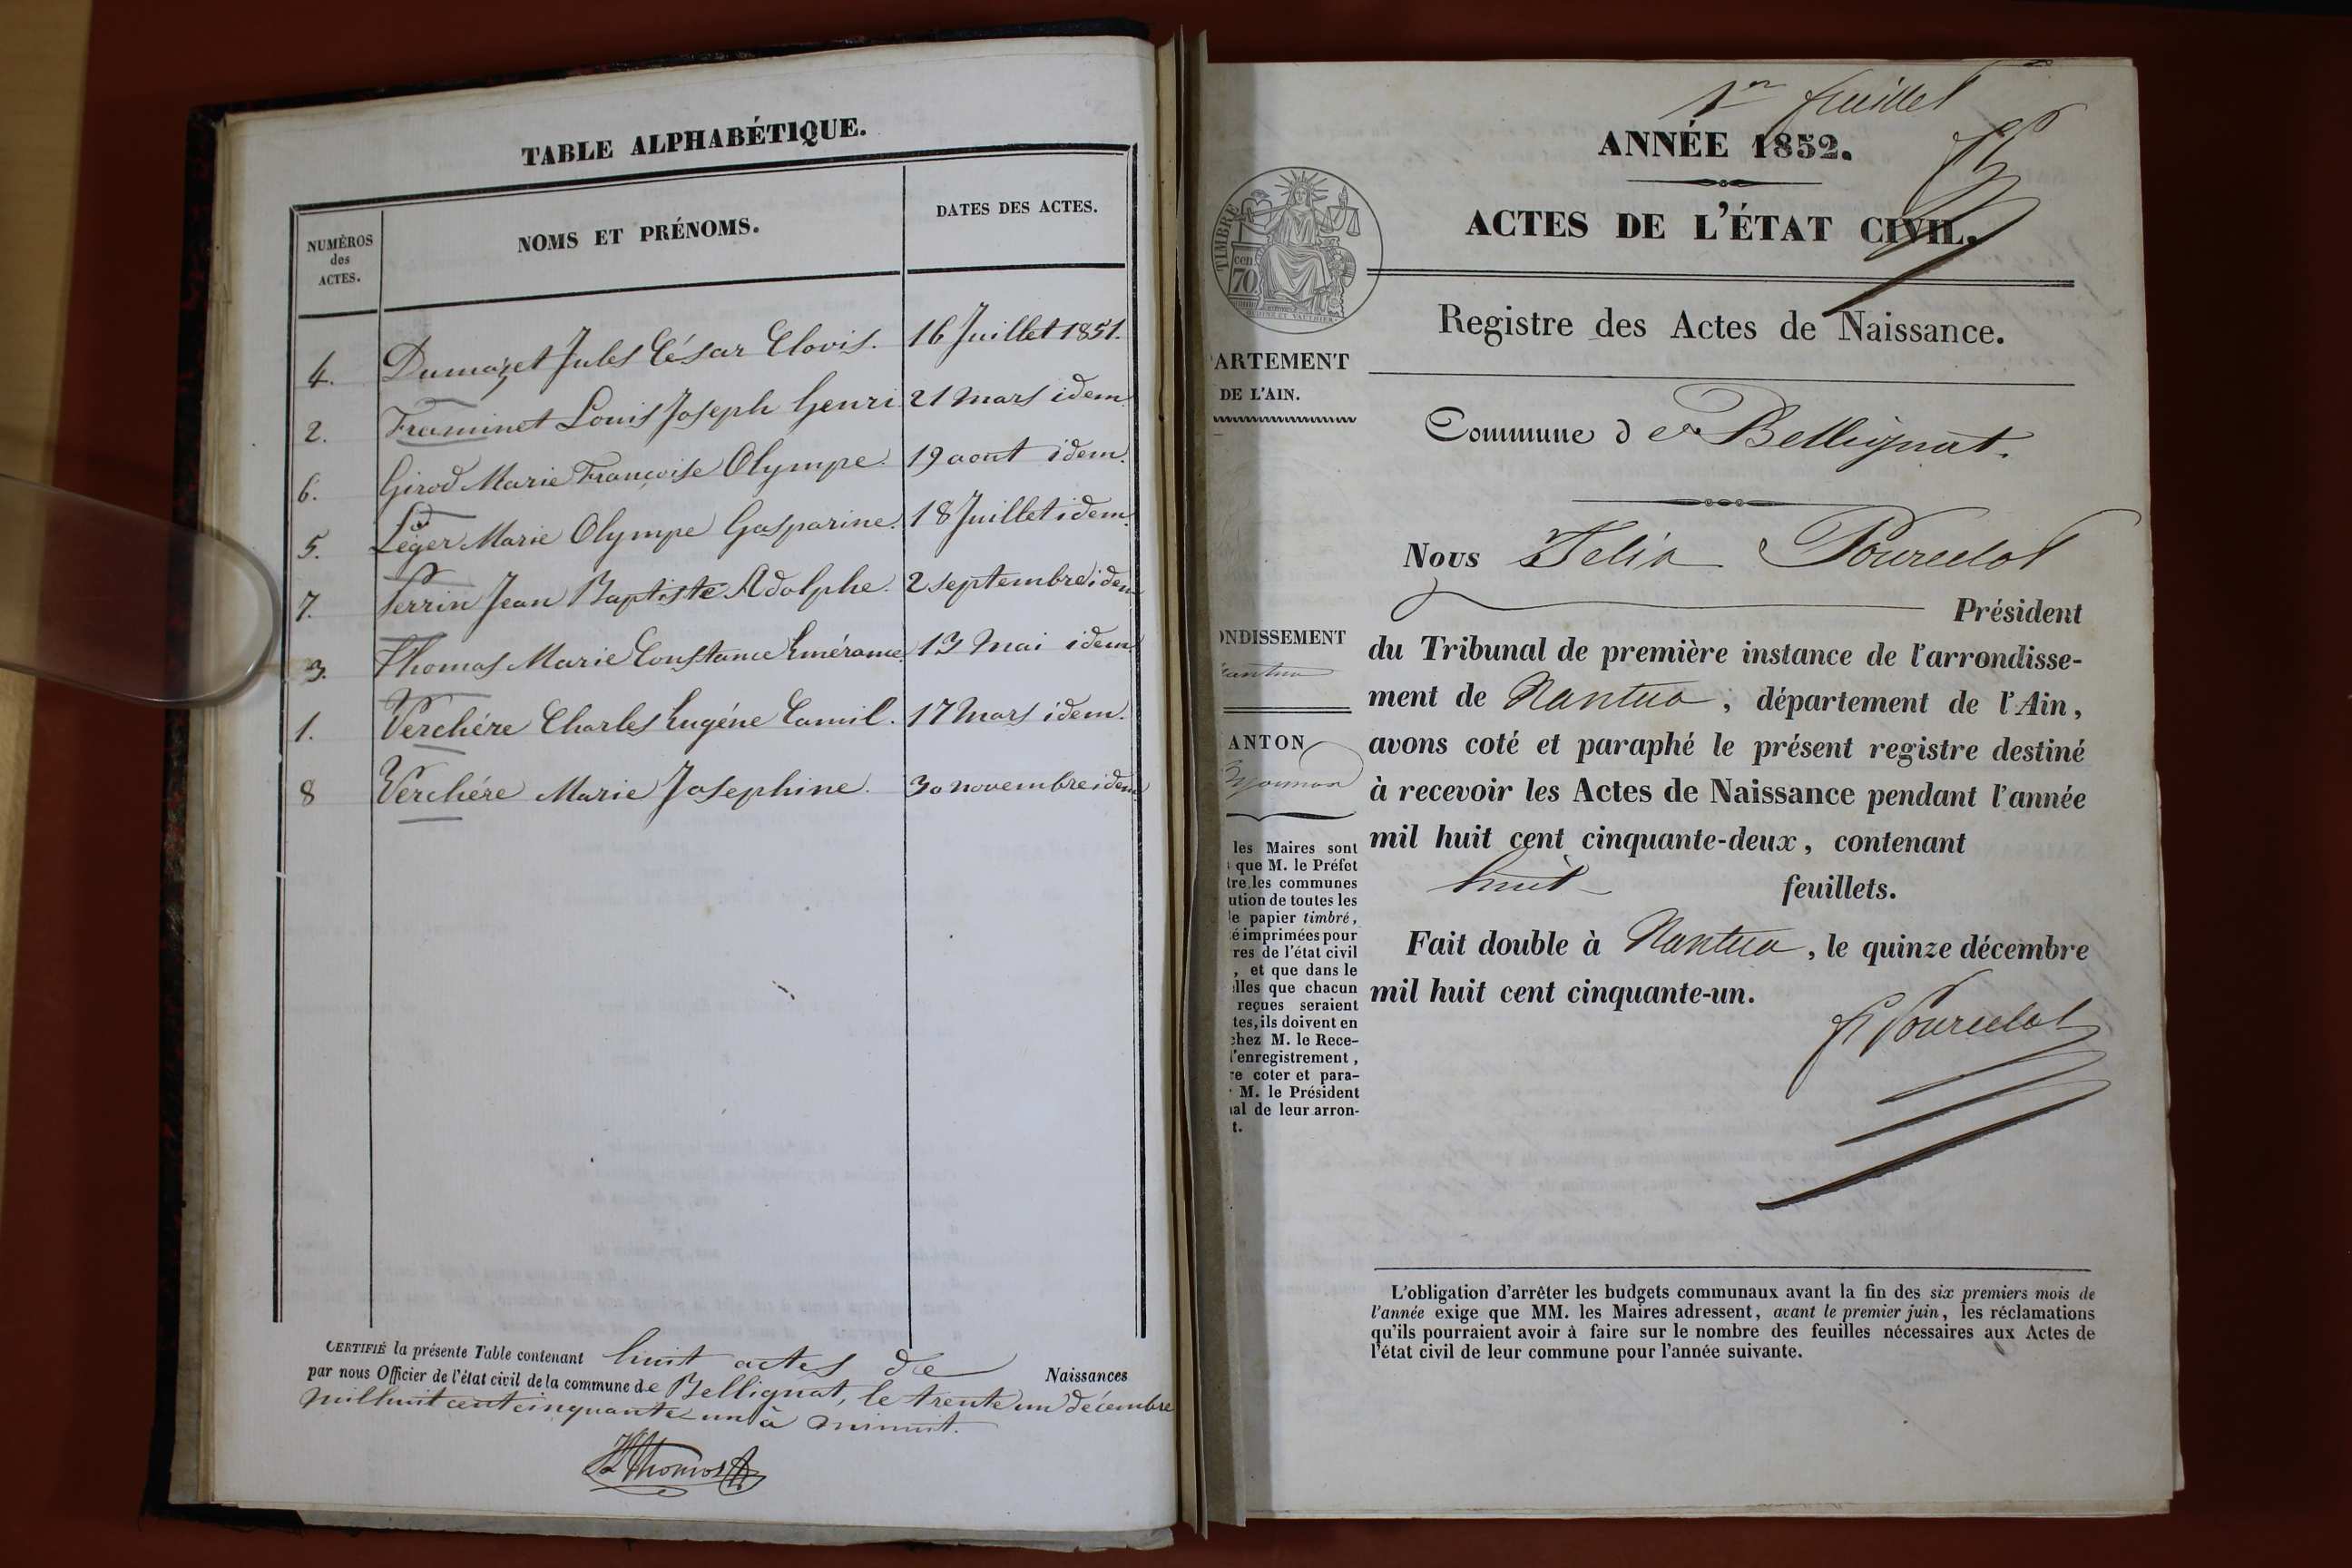 TABLE ALPHABÉTIQUE.
NUMÉROS
des
ACTES.
NOMS ET PRÉNOMS.
DATES DES ACTES.
4. Dumazet Jules César Clovis. 16 Juillet 1851.
2. Framinet Louis Joseph Henri 21 Mars idem
6. Girod Marie Françoise Olympe. 19 aout idem.
5. Léger Marie Olympe Gasparine. 18 Juillet idem.
7. Perrin Jean Baptiste Adolphe. 2 septembre idem
3. Thomas Marie Constance Emérance. 13 Mai idem
1. Verchére Charles Eugéne Camil. 17 Mars idem.
8 Verchére Marie Josephine. 30 novembre idem
CERTIFIÉ la présente Table contenant huit actes de Naissances
par nous Officier de l'état civil de la commune de Bellignat, le trente un décembre
mil huit cent cinquante-un à minuit.
Thomas
1er feuillet
ANNÉE 1852.
ACTES DE L'ÉTAT CIVIL.
TIMBRE
70
cen
Registre des Actes de Naissance.
ARTEMENT
DE L'AIN.
Commune de Bellignat.
Nous Felix Pourcelot
Président
du Tribunal de première instance de l'arrondisse-
ment de Nantua, département de l'Ain,
avons coté et paraphé le présent registre destiné
à recevoir les Actes de Naissance pendant l'année
mil huit cent cinquante-deux, contenant
huit feuillets.
Fait double à Nantua, le quinze décembre
mil huit cent cinquante-un.
F Pourcelot
ONDISSEMENT
antua
ANTON
yonnax
les Maires sont
que M. le Préfet
tre les communes
ution de toutes les
le papier timbré,
é imprimées pour
res de l'état civil
, et que dans le
lles que chacun
reçues seraient
tes, ils doivent en
chez M. le Rece-
l'enregistrement,
re coter et para-
M. le Président
al de leur arron-
t.
L'obligation d'arrêter les budgets communaux avant la fin des six premiers mois de
l'année exige que MM. les Maires adressent, avant le premier juin, les réclamations
qu'ils pourraient avoir à faire sur le nombre des feuilles nécessaires aux Actes de
l'état civil de leur commune pour l'année suivante.